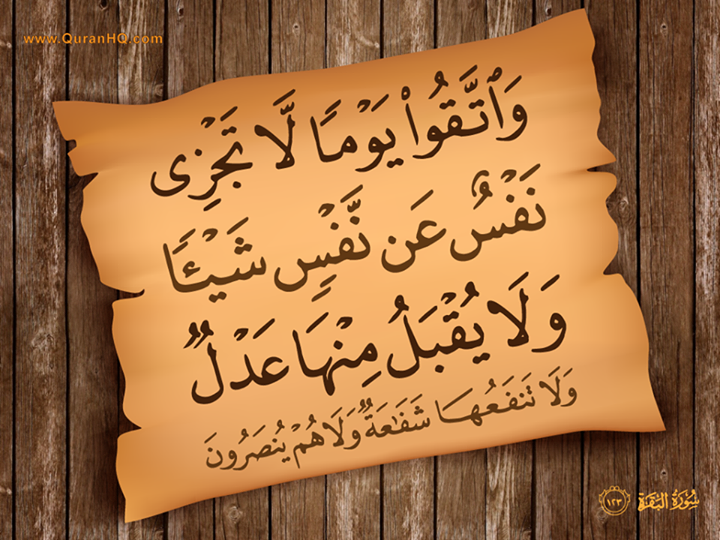 www.QuranHQ.com
وَٱتَّقُوا۟ يَوْمًا لَّا تَجْزِى
نَفْسٌ عَن نَّفْسٍ شَيْـًٔا
وَلَا يُقْبَلُ مِنْهَا عَدْلٌ
وَلَا تَنفَعُهَا شَفَـٰعَةٌ وَلَا هُمْ يُنصَرُونَ
سُورَةُ البَقَرَة ١٢٣